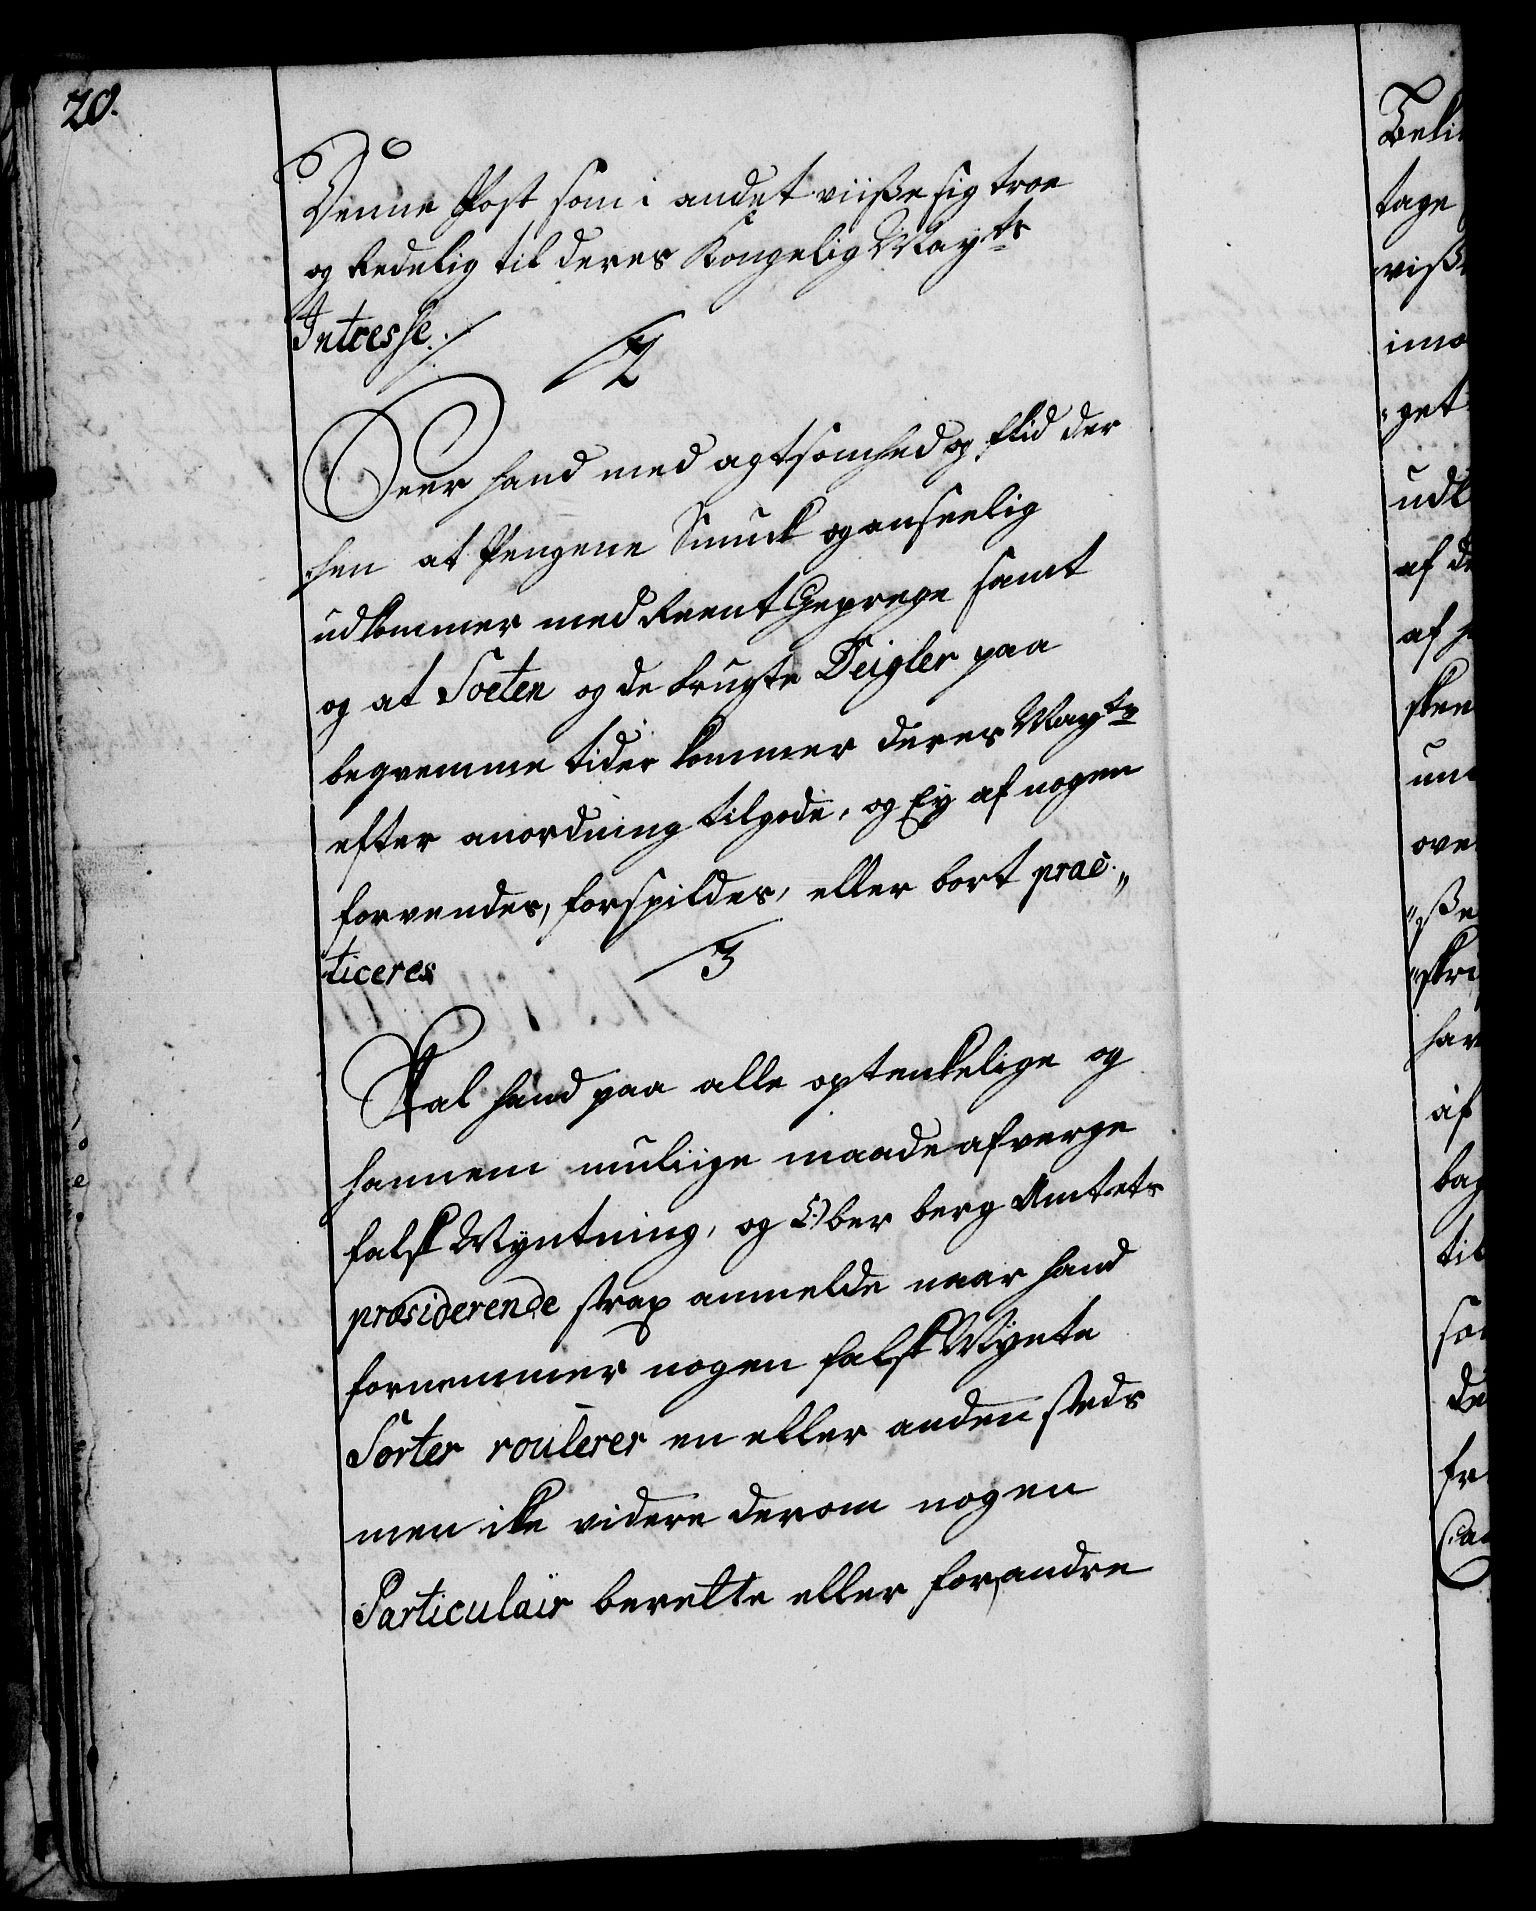 20.
Denne Post som i andet viiße sig troe
og Redelig til deres Kongelig Mayts
Intresse./.
2
Seer hand med agtsomhed og flid der
hen at Pengene Smuck og anseelig
udkommer med Reent Geprege samt
og at Soeten og de brugte Deigler paa
beqvemme tider kommer deres Mayts
efter anordning tilgode, og Ey af nogen
forvendes, forspildes, eller bort prac„
ticeres
3
Skal hand paa alle optenkelige og
hannem muliige maade afverge
falsk Myntning, og Ober berg Amtets
præsiderende strax anmelde naar hand
fornemmer nogen falsk Mynte
Sorter roulerer en eller anden steds
men ike videre derom nogen
Particulair berette eller for andre
Beli
tage
viß
imo
get
udk
af de
af h
skee
un
ove
"ße
"skri
har
af
bag
til
so
De
fr
Ca